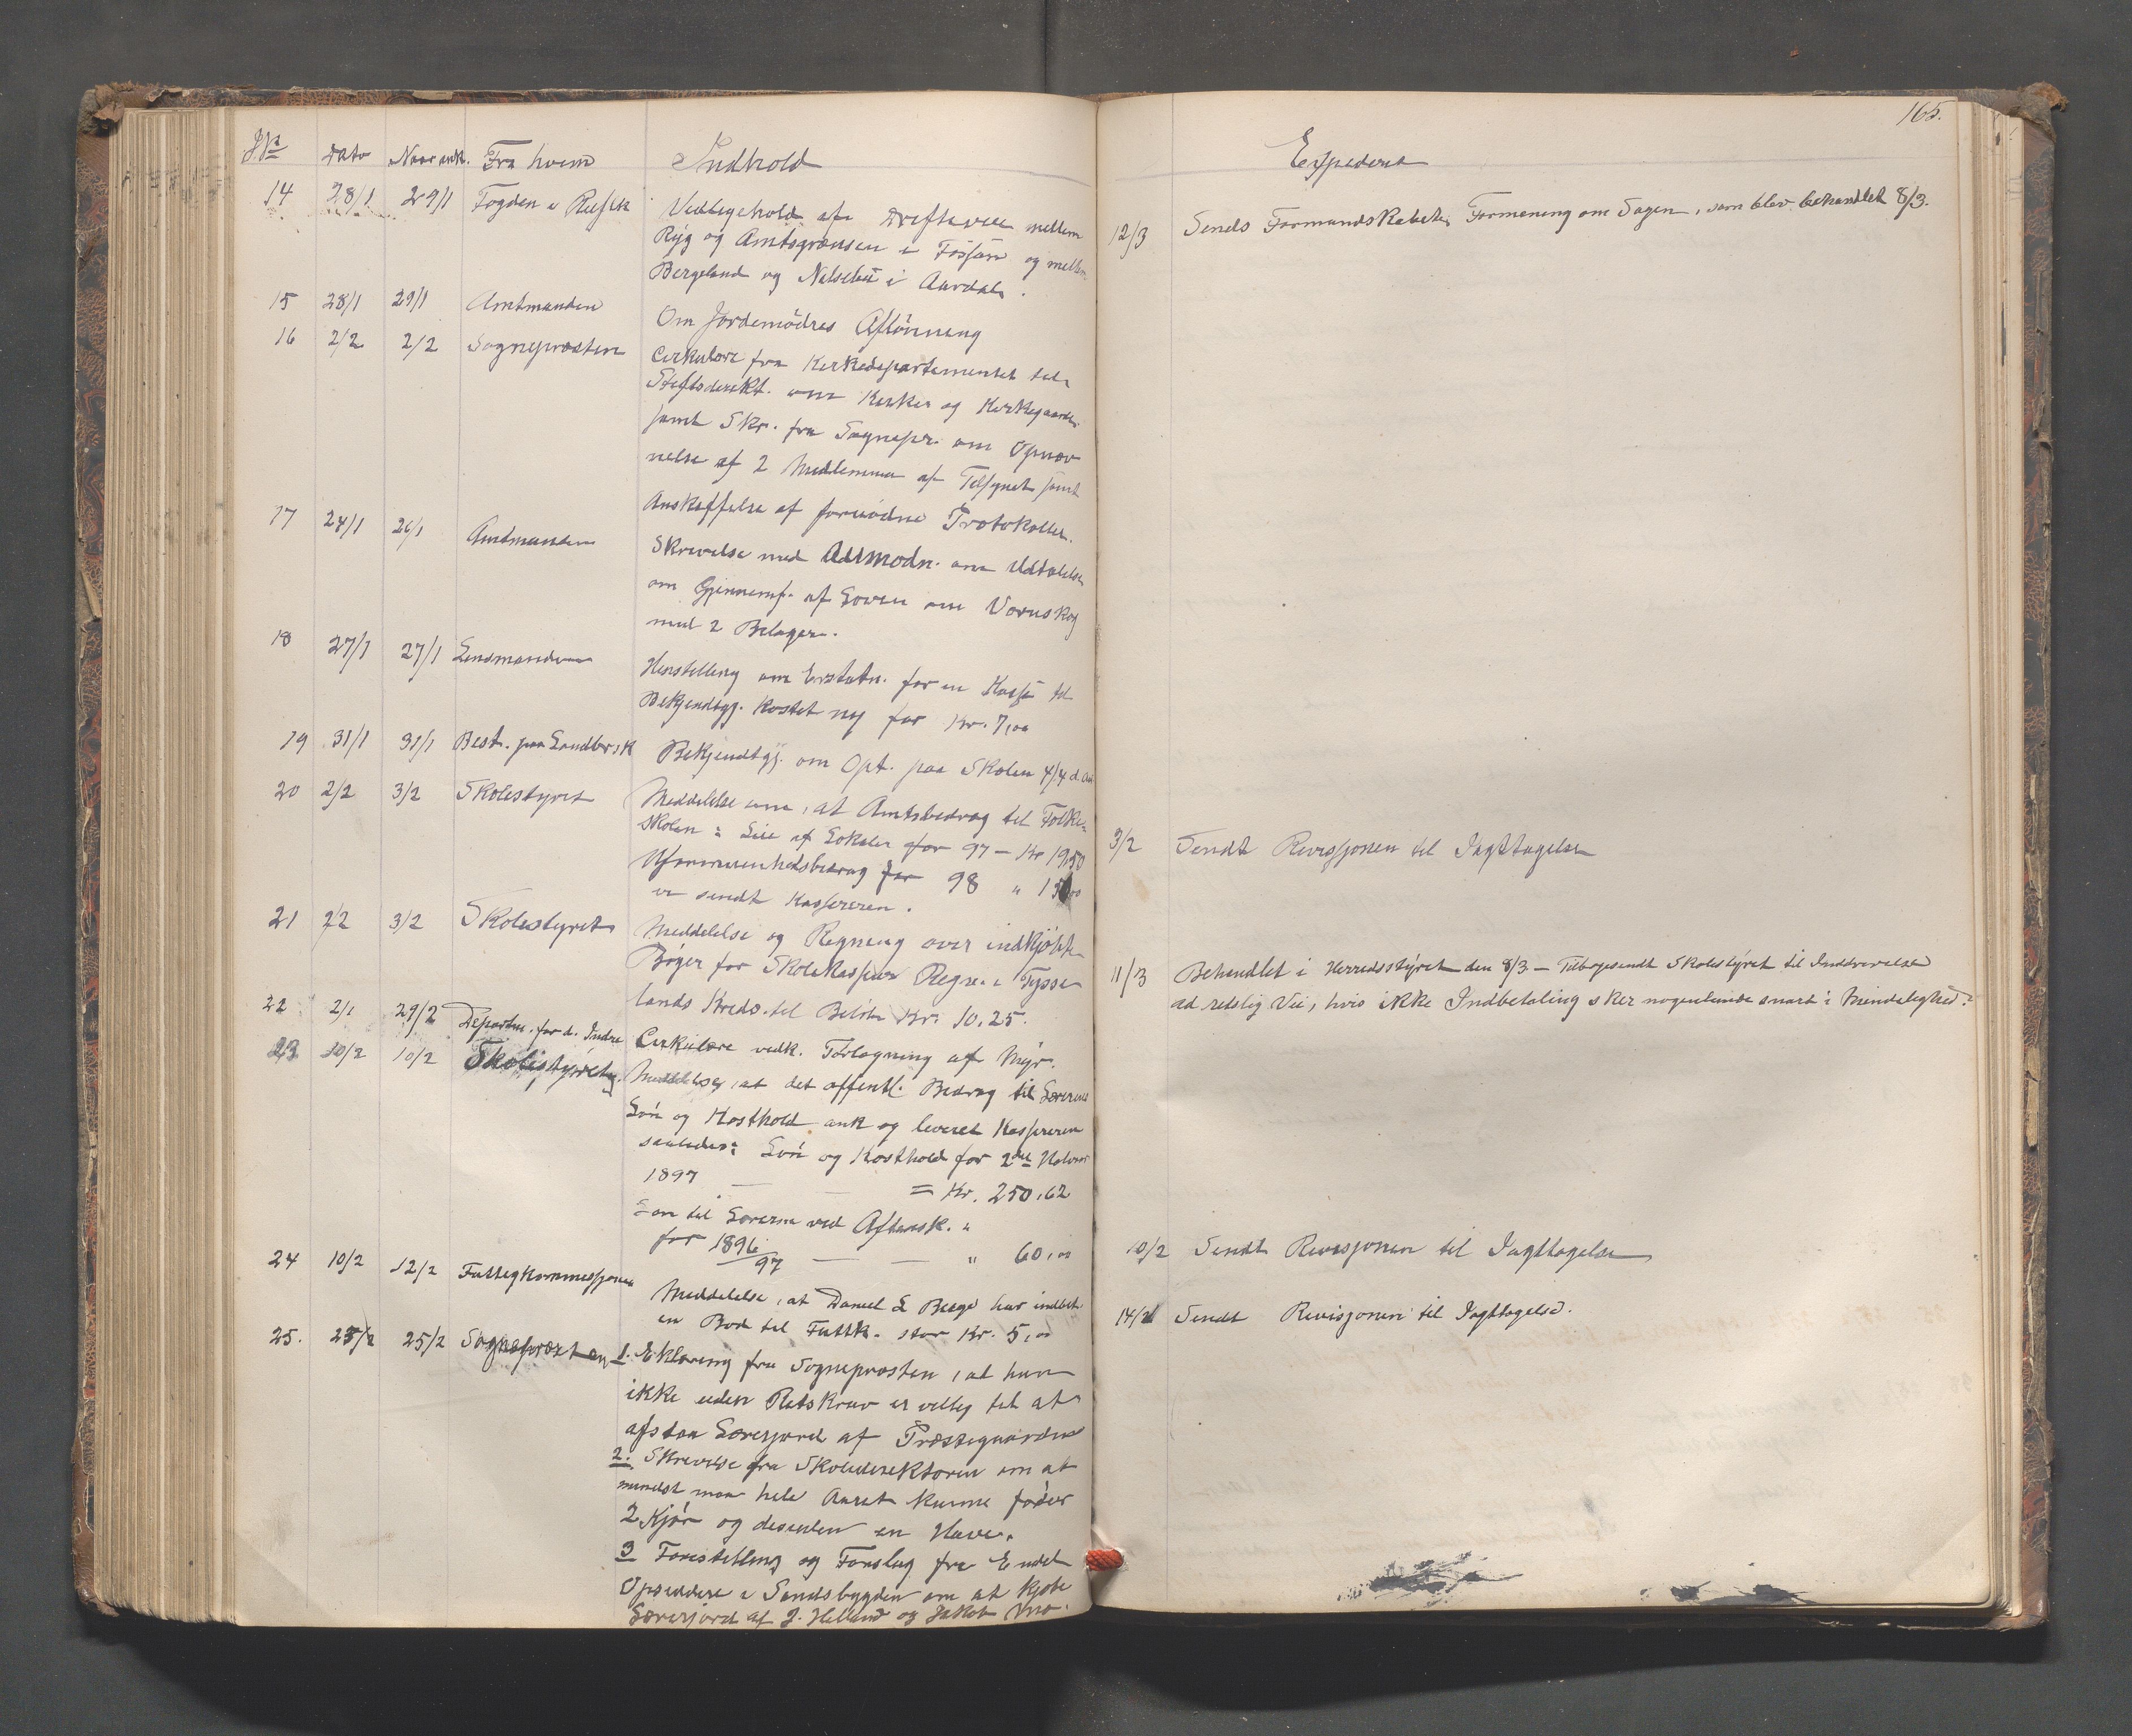 165.
J.№ Dato Naar ank. Fra hvem Indhold Expederet
14 28/1 29/1 Fogden i Ryfylk Vedligehold af Driftevei mellem
Ryg og Amtsgrænsen i Fossan og mellem
Bergeland og Nilsebu i Aardal.
12/3 Sends Formandskabets Formening om Sagen, som blev behandlet 8/3.
15 28/1 29/1 Amtmanden Om Jordemødres Aflønning
16 2/2 2/2 Sognepræsten Cirkulære fra Kirkedepartementet til
Stiftsdirekt. om Kirker og Kirkegaarde
samt Skr. fra Sognepr. om Opnæv
nelse af 2 Medlemmer af Tilsynet samt
Anskaffelse af fornødne Protokoller.
17 24/1 26/1 Amtmanden Skrivelse med Anmodn. om Udtalelse
om Gjennemf. af Loven om Vernskog
med 2 Belager.
18 27/1 27/1 Lensmanden Henstilling om Erstatn. for en Kasse til
Bekjendtgj. Kostet ny for Kr. 7,00
19 31/1 31/1 Best. paa Landbrsk Bekjendtgj. om Opt. paa Skolen 4/4 d. Aar
20 2/2 3/2 Skolestyret Meddelelse om, at Amtsbidrag til Folke-
skolen: Leie af Lokaler for 97 — Kr 19,50
Uformuenhedsbidrag for 98 " 150,00
er sendt Kassereren.
3/2 Sendt Revisjonen til Iagttagelse
21 2/2 3/2 Skolestyret Meddelelse og Regning over indkjøpte
Bøger for Skolekassens Regn. i Tysse-
lands Kreds til Beløb Kr. 10,25.
11/3 Behandlet i Herredsstyret den 8/3 — Tilbagesendt Skolestyret til Inddrivelse
ad retslig Vei, hvis ikke Indbetaling sker nogenlunde snart i Mindelighed.
22 2/1 29/2 Departm. for d. Indre Cirkulære vedk. Torlagning af Myr.
23 10/2 10/2 Skolestyret Meddelse, at det offentl. Bidrag til Lærernes
Løn og Kosthold ank og leveret Kassereren
saaledes: Løn og Kosthold for 2det Halvaar
1897 — — = Kr. 250,62
Løn til Lærerne ved Aftensk. "
for 1896/97 — — " 60,00
10/2 Sendt Revisjonen til Iagttagelse
24 10/2 12/2 Fattigkommissjonen Meddelelse, at Daniel L Berge har indbet.
en Bod til Fattk. stor Kr. 5,00
14/2 Sendt Revisjonen til Iagttagelse.
25. 25/2 25/2 Sognepræsten 1. Eklæring fra Sognepræsten, at han
ikke uden Retskrav er villig til at
afstaa Lærerjord af Præstegaarden
2. Skrivelse fra Skoledirektøren om at
mindst maa hele Aaret kunne fødes
2 Kjør og desuden en Have.
3 Forestilling og Forslag fra Endel
Opsiddere i Sandsbygden om at kjøbe
Lærerjord af J. Helland og Jakob Mo.